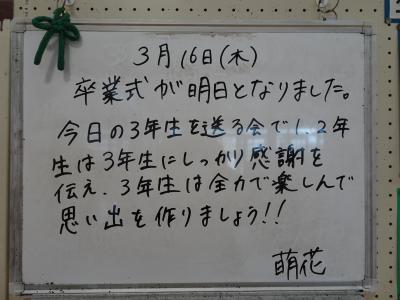 3月16日(木)
卒業式が明日となりました。
今日の3年生を送る会で1、2年
生は3年生にしっかり感謝を
伝え、3年生は全力で楽しんで
思い出を作りましょう!!
萌花